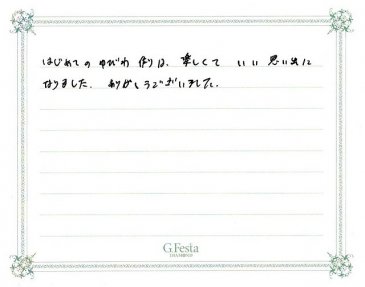 はじめての ゆびわ 作りは、楽しくて いい 思い出に
なりました. ありがとうございました.
G.Festa
DIAMOND